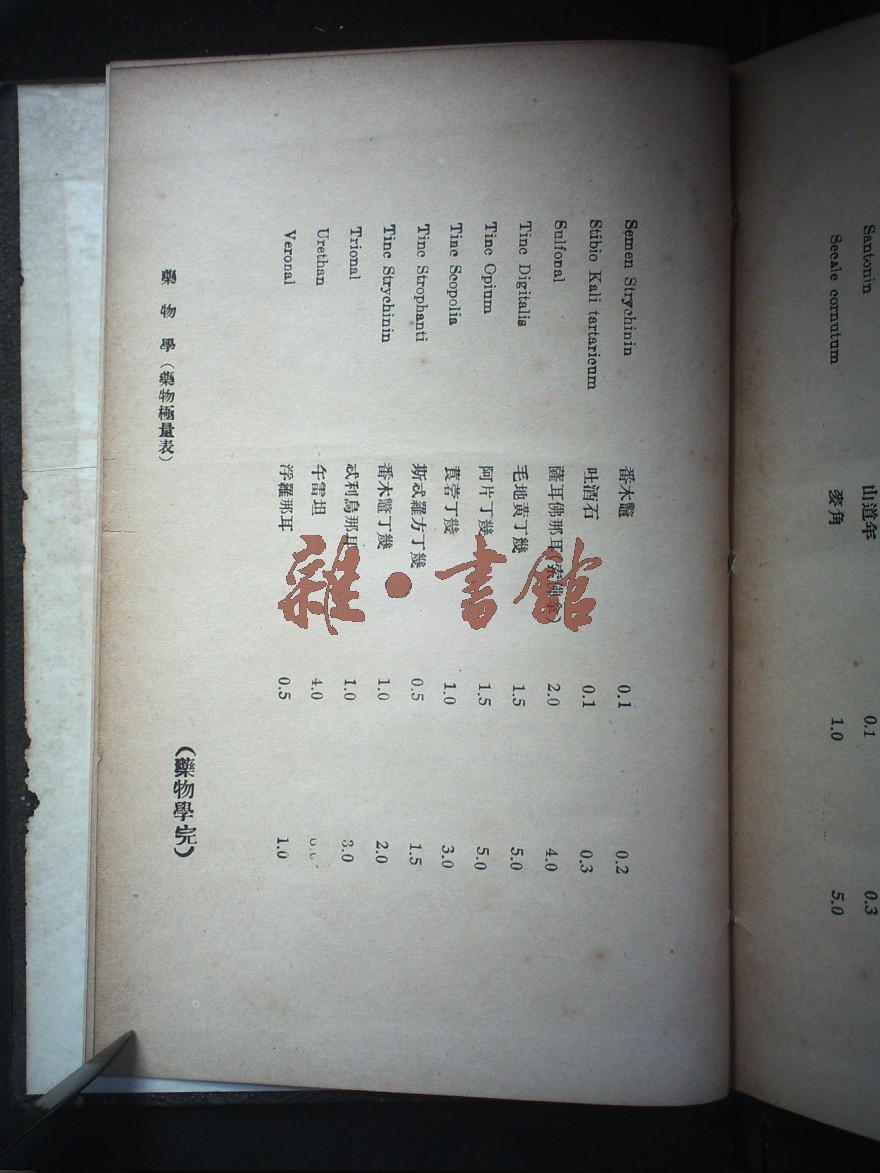 Santonin 山道年 0.1 0.3
Secale cornutum 麥角 1.0 5.0
Semen Strychinin 番木鼈 0.1 0.2
Stibio Kali tartaricum 吐酒石 0.1 0.3
Sulfonal 薩耳佛那耳 2.0 4.0
Tinc Digitalis 毛地黃丁幾 1.5 5.0
Tinc Opium 阿片丁幾 1.5 5.0
Tinc Scopolia 莨菪丁幾 1.0 3.0
Tinc Strophanti 斯忒羅方丁幾 0.5 1.5
Tinc Strychinin 番木鼈丁幾 1.0 2.0
Trional 忒利鳥那耳 1.0 3.0
Urethan 午雷坦 4.0
Veronal 浮羅那耳 0.5 1.0
(藥物學完)
藥物學(藥物極量表)
雜·書館